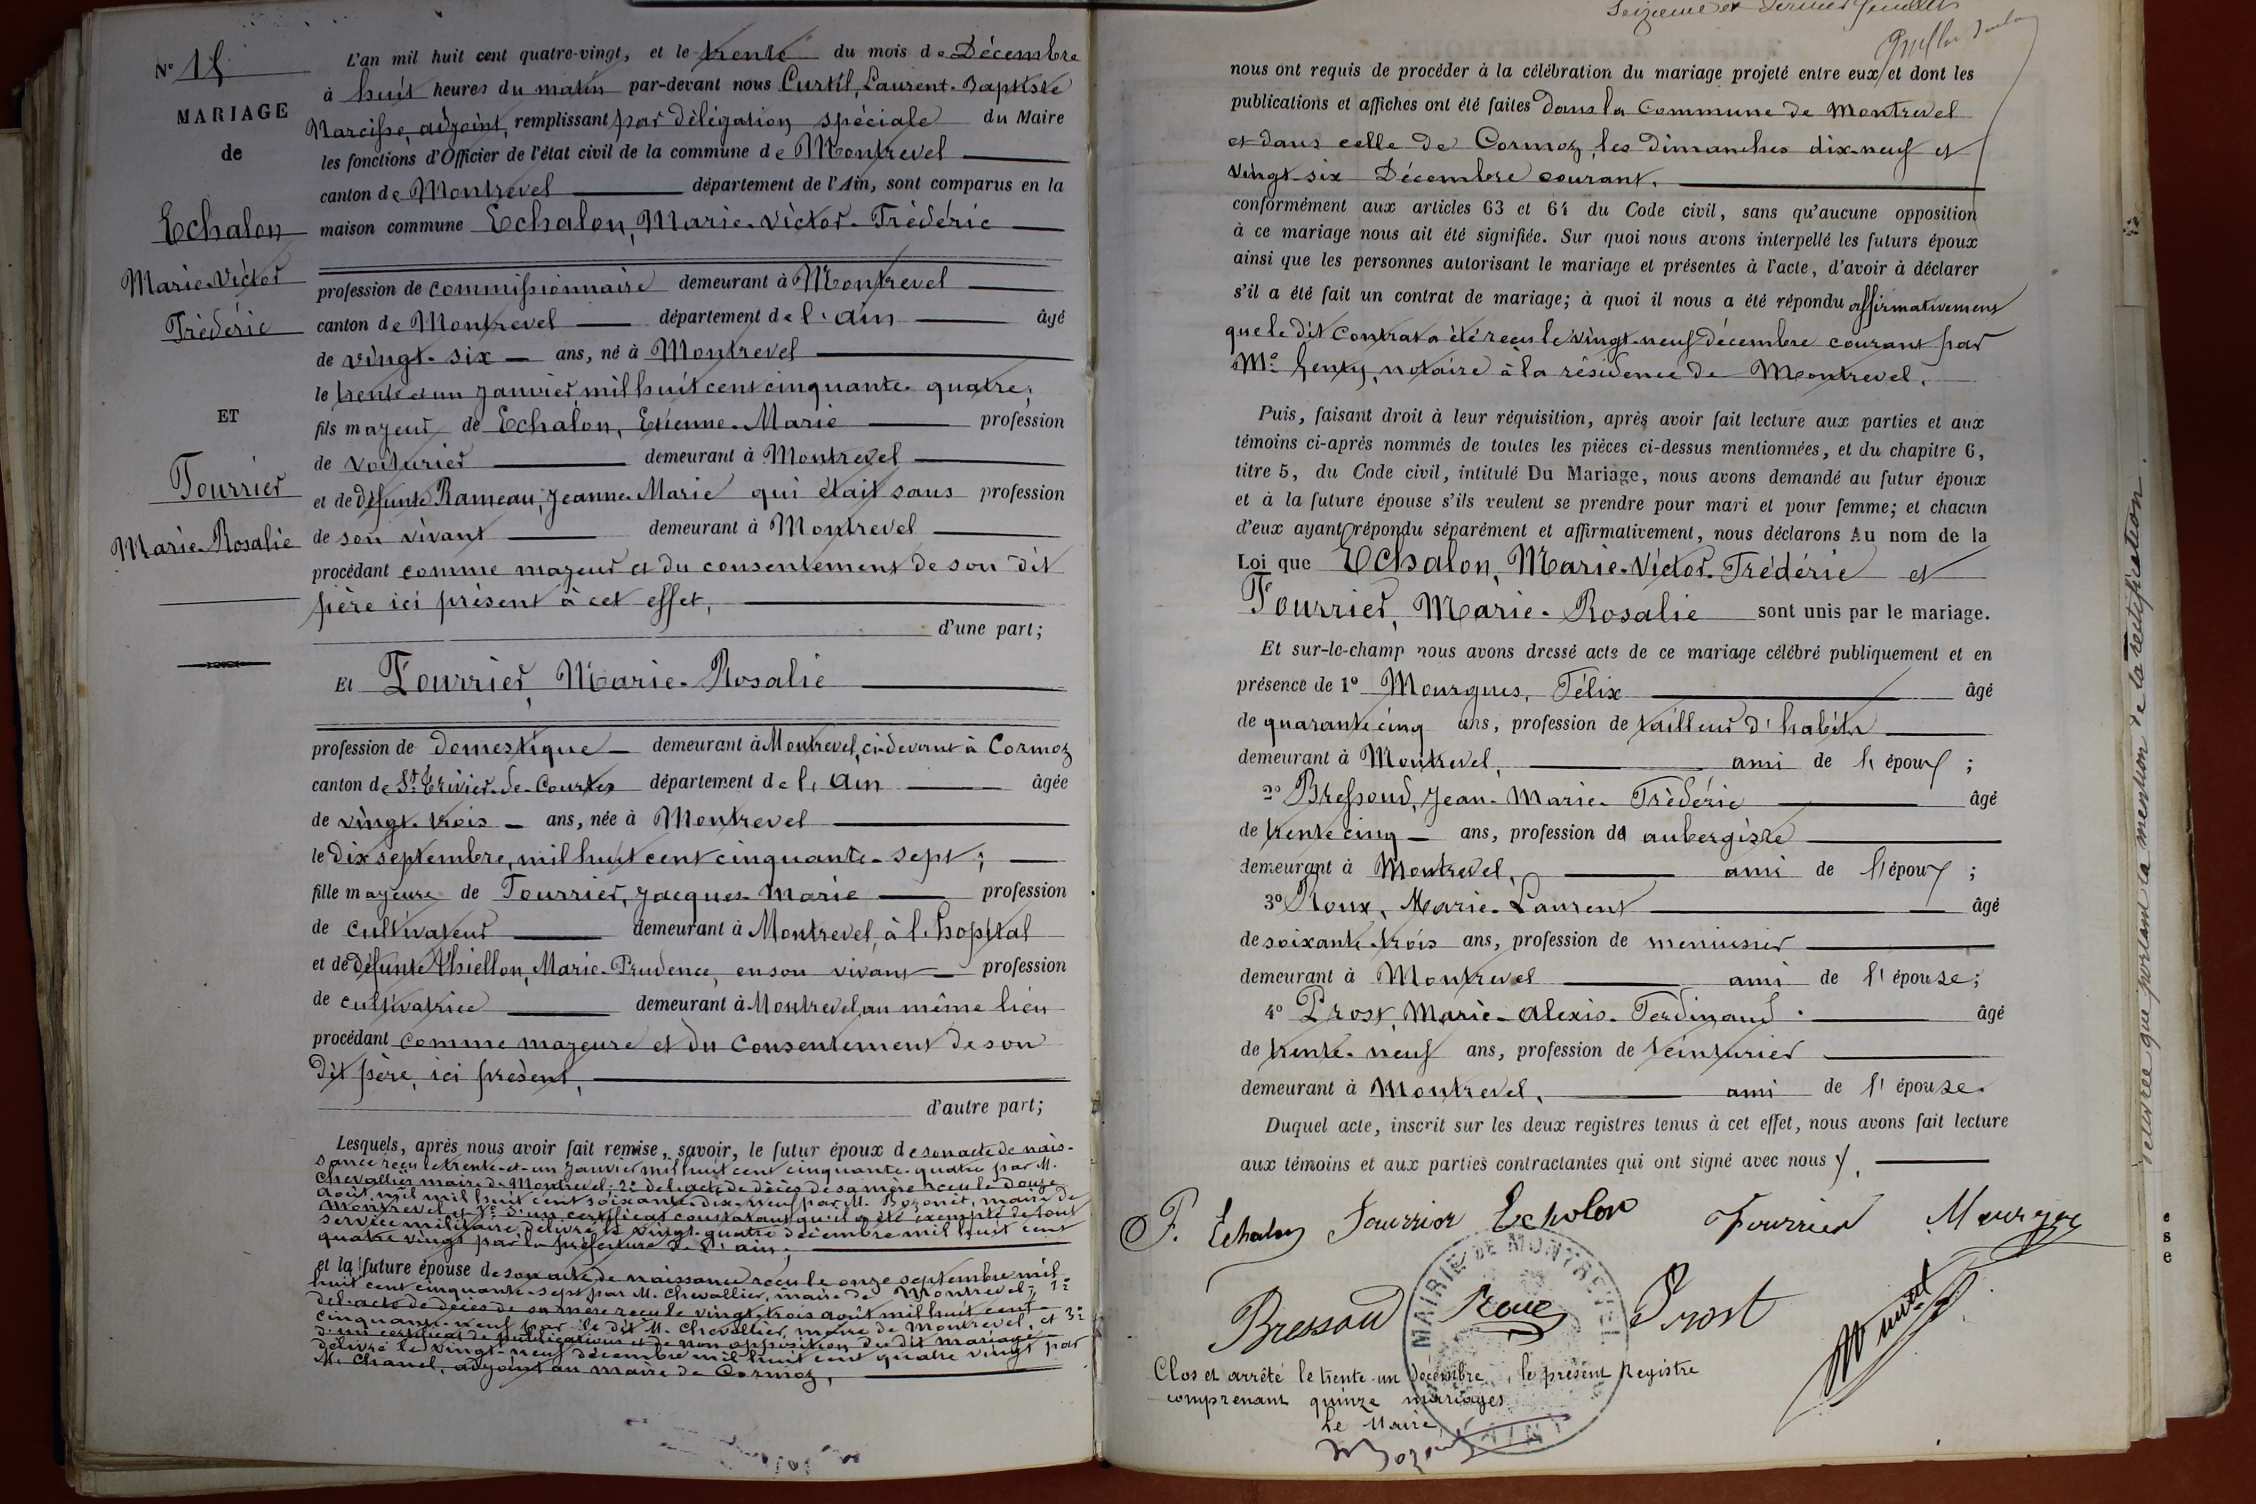 N° 15
MARIAGE
de
Echalon
Marie-Victor
Frédéric
ET
Fourrier
Marie-Rosalie
L'an mil huit cent quatre-vingt, et le trente du mois de Décembre
à huit heures du matin par-devant nous Curtil, Laurent-Baptiste
Narcisse, adjoint, remplissant par délégation spéciale du Maire
les fonctions d'Officier de l'état civil de la commune de Montrevel
canton de Montrevel département de l'Ain, sont comparus en la
maison commune Echalon, Marie-Victor-Frédéric
profession de commissionnaire demeurant à Montrevel
canton de Montrevel département de l'ain âgé
de vingt-six ans, né à Montrevel
le trente et un janvier mil huit cent cinquante-quatre;
fils majeur de Echalon, Etienne-Marie profession
de voiturier demeurant à Montrevel
et de défunte Rameau, Jeanne-Marie qui était sans profession
de son vivant demeurant à Montrevel
procédant comme majeur et du consentement de son dit
père ici présent à cet effet,
d'une part;
Et Fourrier, Marie-Rosalie
profession de domestique demeurant à Montrevel, ci-devant à Cormoz
canton de St Trivier-de-Courtes département de l'ain âgée
de vingt-trois ans, née à Montrevel
le dix septembre, mil huit cent cinquante-sept;
fille majeure de Fourrier, Jacques-Marie profession
de cultivateur demeurant à Montrevel, à l'hopital
et de défunte Thiellon, Marie-Prudence, en son vivant profession
de cultivatrice demeurant à Montrevel au même lieu
procédant comme majeure et du consentement de son
dit père, ici présent,
d'autre part;
Lesquels, après nous avoir fait remise, savoir, le futur époux de son acte de nais-
sance reçu le trente-et-un janvier mil huit cent cinquante-quatre par M.
Chevallier maire de Montrevel; 2° de l'acte de décès de sa mère reçu le douze
août mil huit cent soixante-dix-neuf par M. Bozonet, maire de
Montrevel et 3° d'un certificat constatant qu'il a été exempté de tout
service militaire délivré le vingt-quatre décembre mil huit cent
quatre vingt par la préfecture de l'ain;
et la future épouse de son acte de naissance reçu le onze septembre mil
huit cent cinquante-sept par M. Chevallier, maire de Montrevel; 2°
de l'acte de décès de sa mère reçu le vingt-trois août mil huit cent
cinquante-neuf par le dit M. Chevallier, maire de Montrevel, et 3°
d'un certificat de publications et de non opposition du dit mariage
délivré le vingt-neuf décembre mil huit cent quatre vingt par
M. Chanel, adjoint au maire de Cormoz,
Seizième et dernier feuillet
nous ont requis de procéder à la célébration du mariage projeté entre eux et dont les
publications et affiches ont été faites dans la Commune de Montrevel
et dans celle de Cormoz, les dimanches dix-neuf et
vingt-six Décembre courant,
conformément aux articles 63 et 64 du Code civil, sans qu'aucune opposition
à ce mariage nous ait été signifiée. Sur quoi nous avons interpellé les futurs époux
ainsi que les personnes autorisant le mariage et présentes à l'acte, d'avoir à déclarer
s'il a été fait un contrat de mariage; à quoi il nous a été répondu affirmativement
que le dit Contrat a été reçu le vingt-neuf décembre courant par
Me Genty, notaire à la résidence de Montrevel.
Puis, faisant droit à leur réquisition, après avoir fait lecture aux parties et aux
témoins ci-après nommés de toutes les pièces ci-dessus mentionnées, et du chapitre 6,
titre 5, du Code civil, intitulé Du Mariage, nous avons demandé au futur époux
et à la future épouse s'ils veulent se prendre pour mari et pour femme; et chacun
d'eux ayant répondu séparément et affirmativement, nous déclarons Au nom de la
Loi que Echalon, Marie-Victor-Frédéric et
Fourrier, Marie-Rosalie sont unis par le mariage.
Et sur-le-champ nous avons dressé acte de ce mariage célébré publiquement et en
présence de 1° Mourgues, Félix âgé
de quarante cinq ans, profession de tailleur d'habits
demeurant à Montrevel, ami de l'époux;
2° Bressoud, Jean-Marie-Frédéric âgé
de trente cinq ans, profession de aubergiste
demeurant à Montrevel, ami de l'époux;
3° Roux, Marie-Laurent âgé
de soixante-trois ans, profession de menuisier
demeurant à Montrevel ami de l'épouse;
4° Prost, Marie-Alexis-Ferdinand âgé
de trente-neuf ans, profession de teinturier
demeurant à Montrevel, ami de l'épouse.
Duquel acte, inscrit sur les deux registres tenus à cet effet, nous avons fait lecture
aux témoins et aux parties contractantes qui ont signé avec nous
F. Echalon Fourrier Echalon Fourrier Mourgues
Bressoud Roux Prost
MAIRIE DE MONTREVEL
AIN
Clos et arrêté le trente-un Décembre, le présent Registre
comprenant quinze mariages
Le Maire
Bozonet
relevée que portant la mention de la rectification.